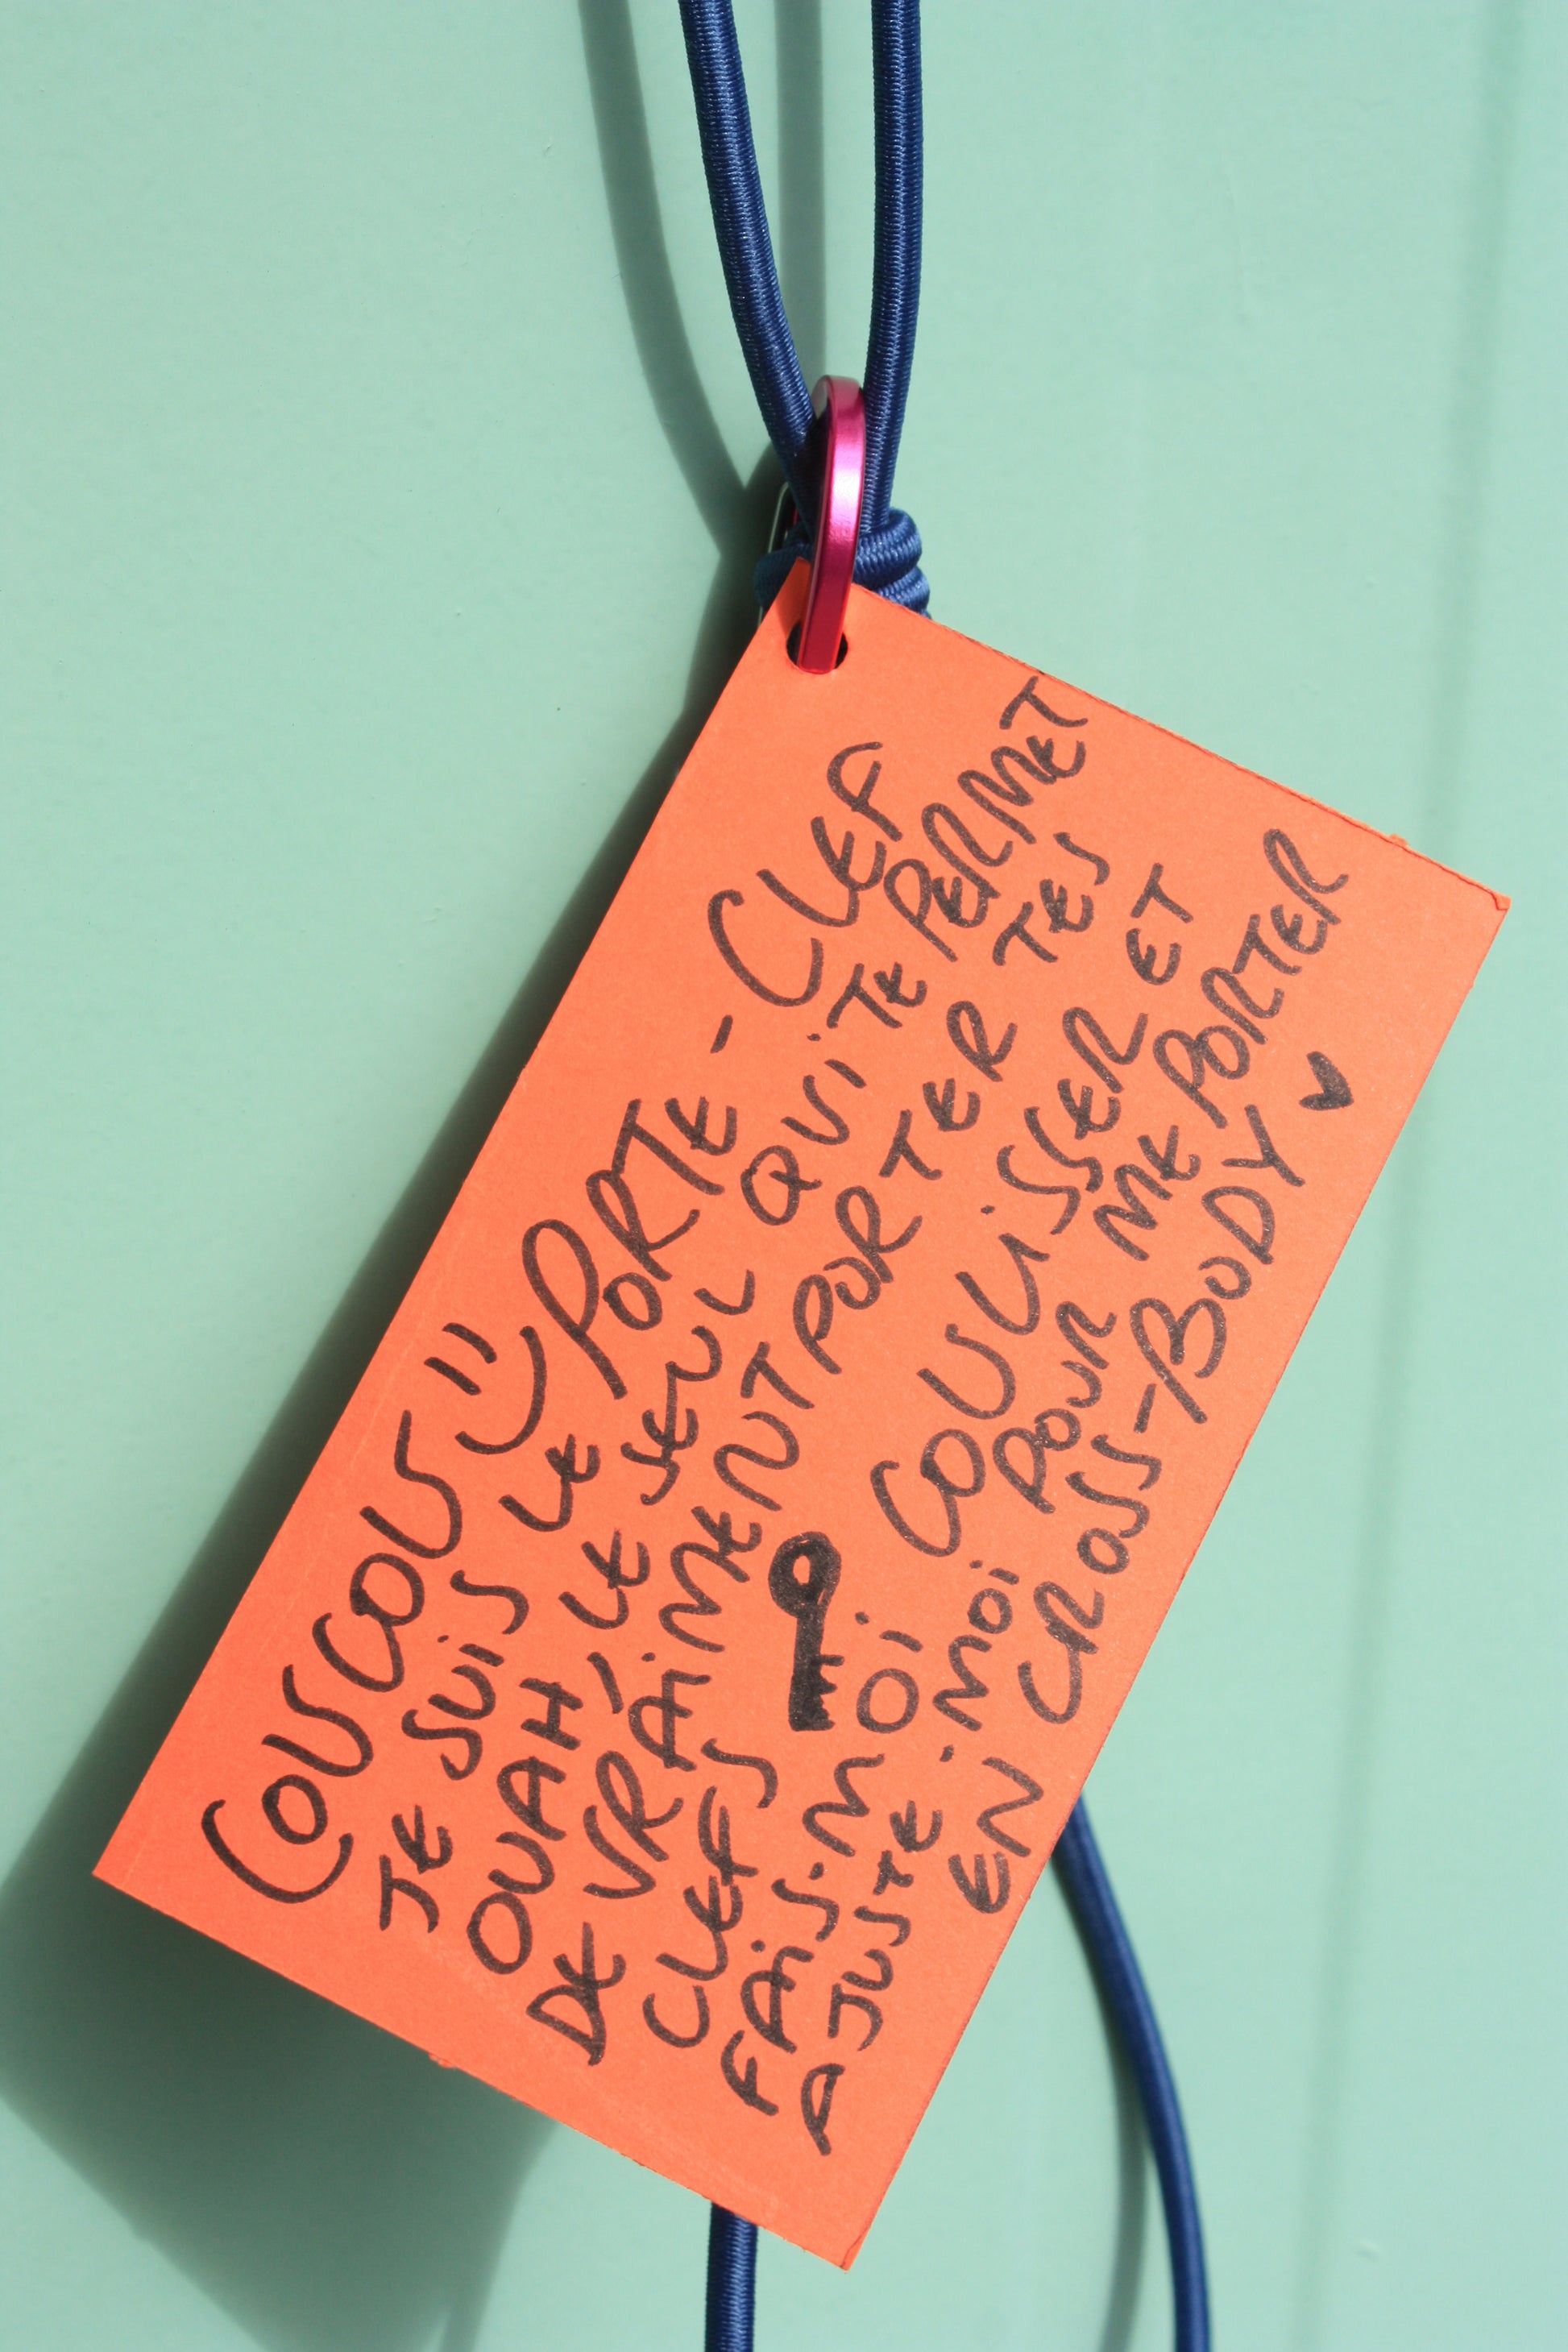 COUCOU =)
JE SUIS LE PORTE-CLEF
OUAH, LE SEUL QUI TE PERMET
DE VRAIMENT PORTER TES
CLEFS
FAIS-MOI COULISSER ET
AJUSTE-MOI POUR ME PORTER
EN CROSS-BODY ♥